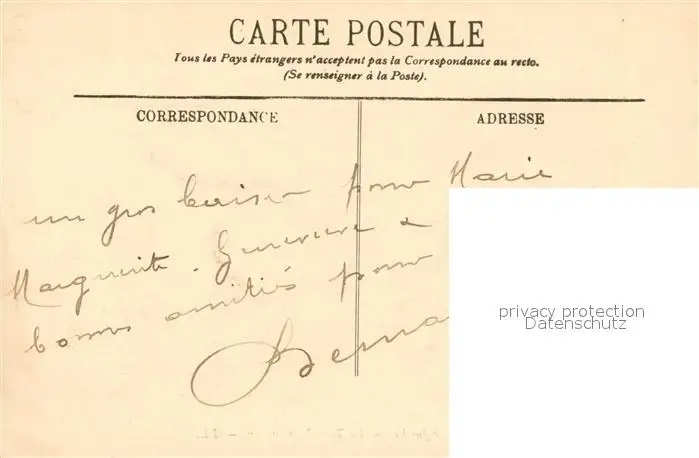 CARTE POSTALE
Tous les Pays étrangers n'acceptent pas la Correspondance au recto.
(Se renseigner à la Poste).
CORRESPONDANCE
ADRESSE
un gros baiser pour Marie
Marguerite. Genevieve &
bonnes amitiés pour
Berna
privacy protection
Datenschutz